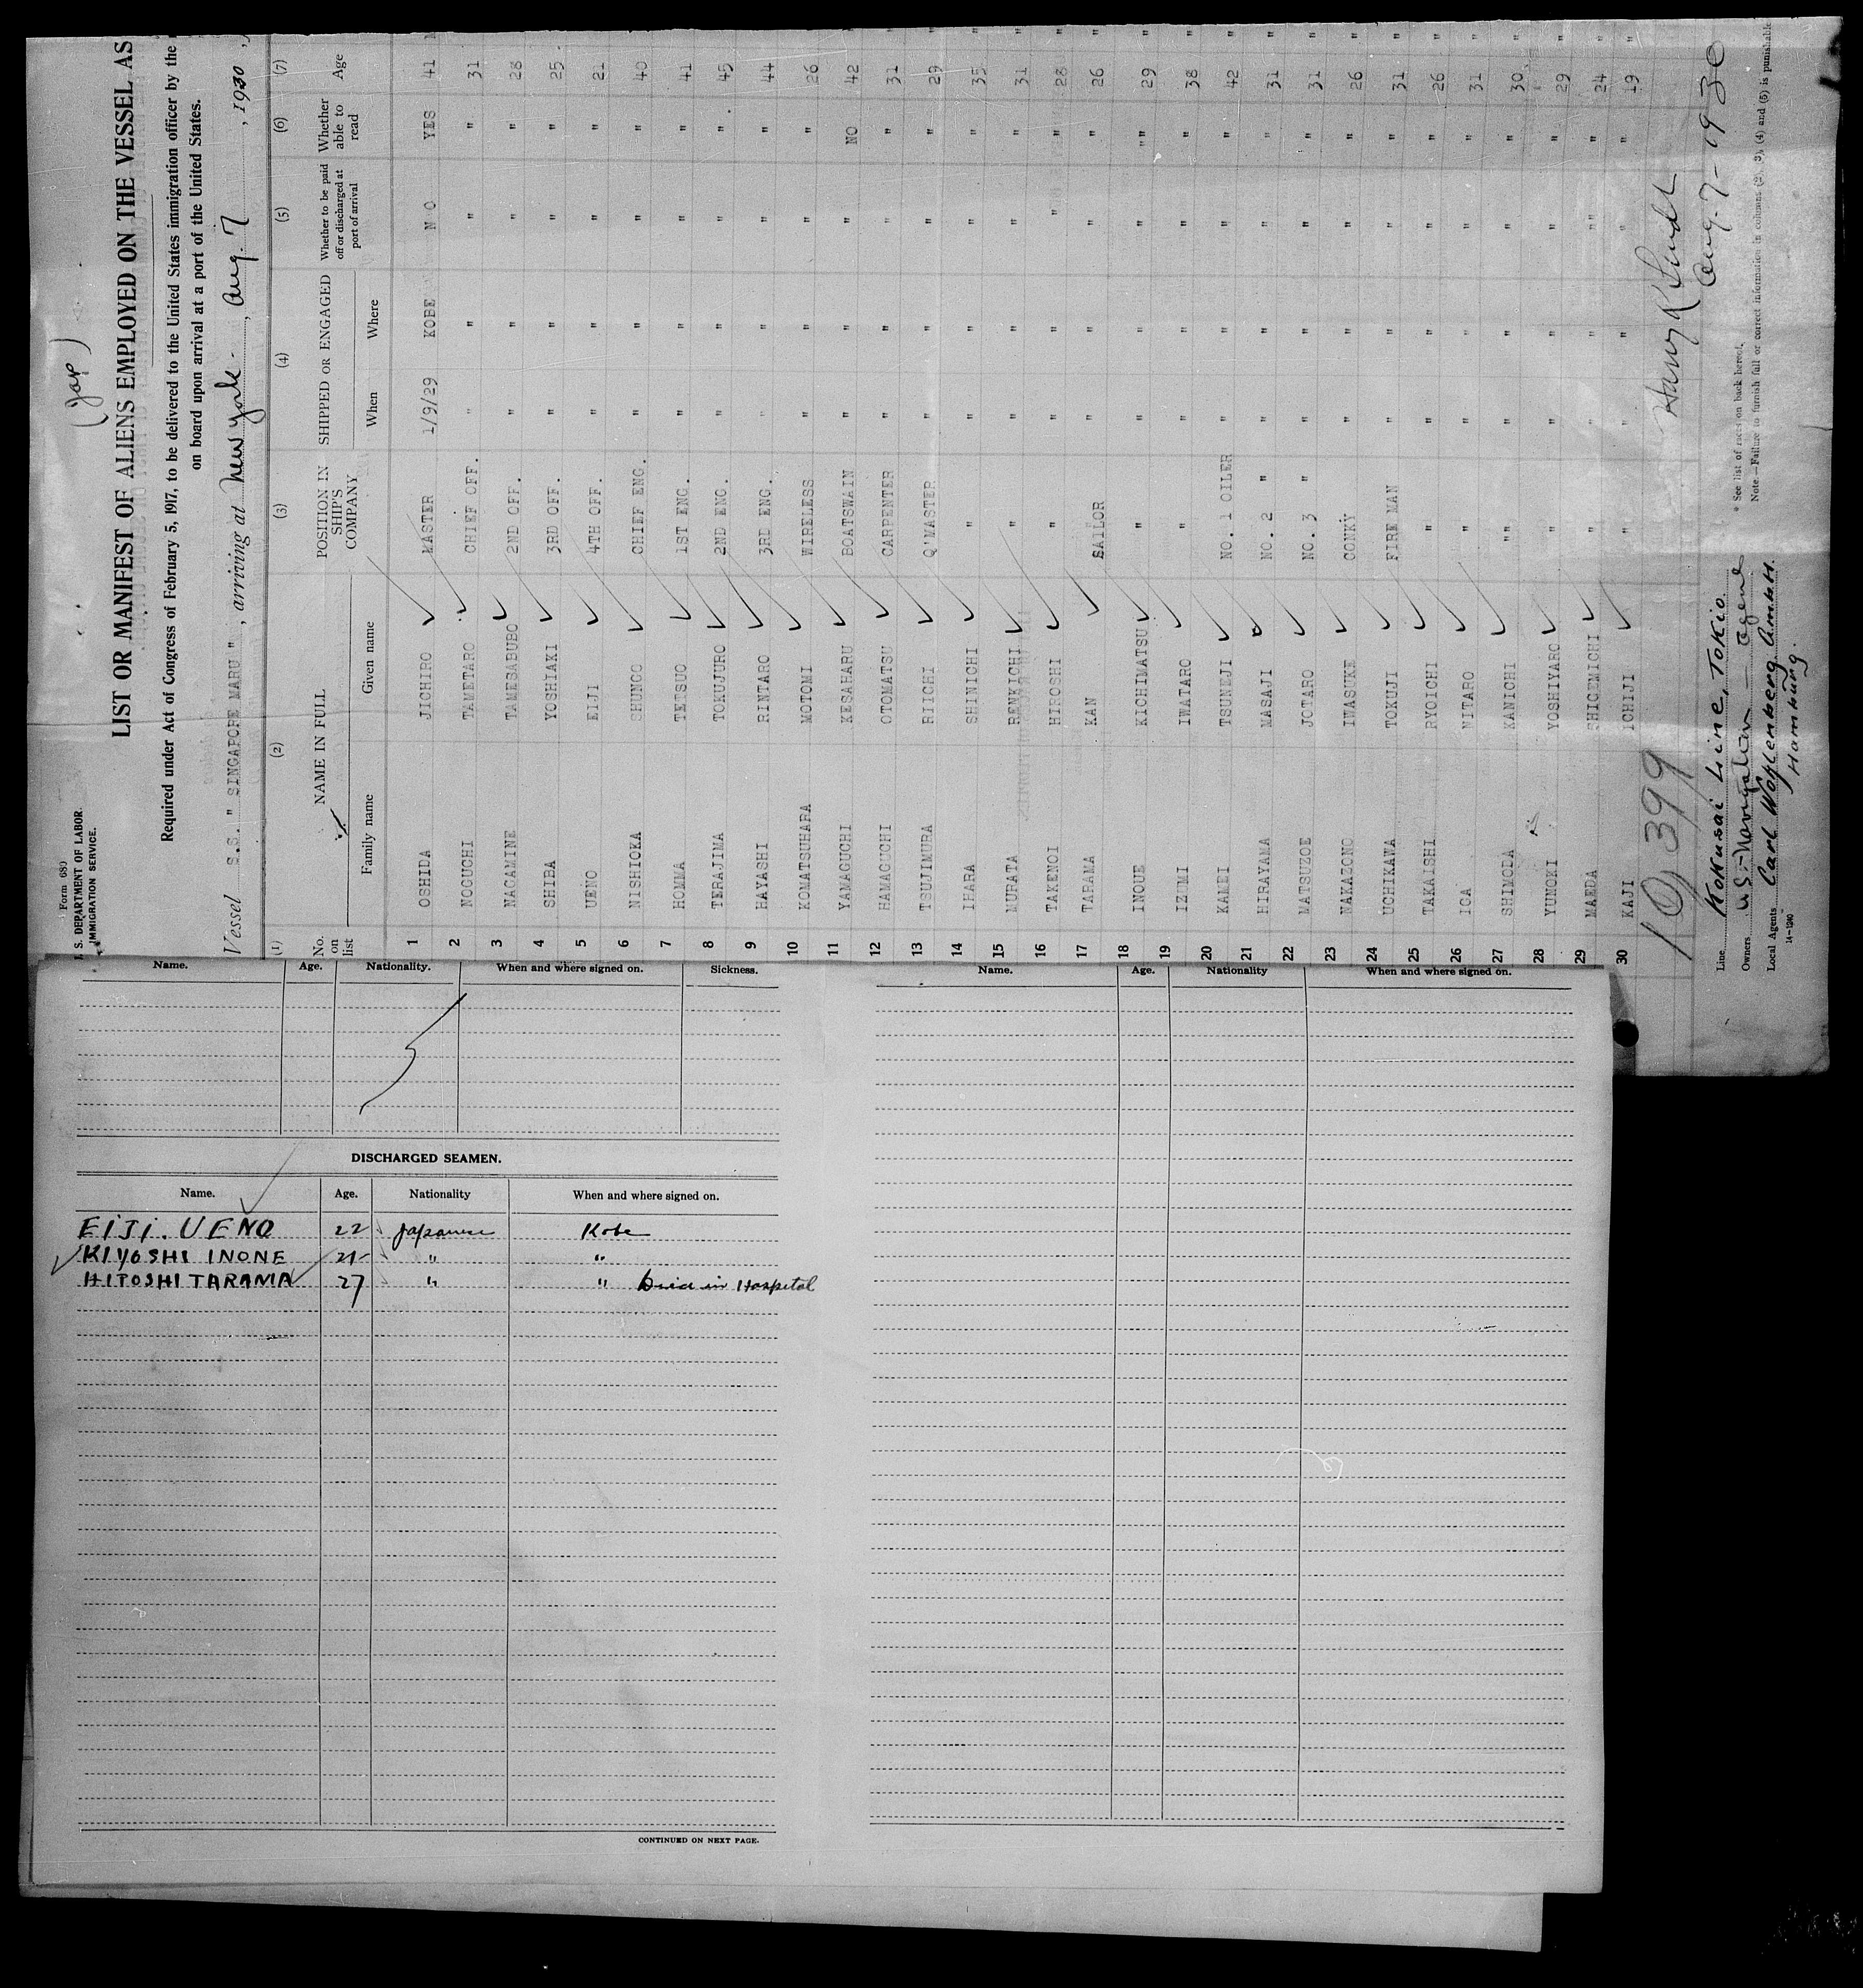 (Jap)
Form 680
S. DEPARTMENT OF LABOR
IMMIGRATION SERVICE.
LIST OR MANIFEST OF ALIENS EMPLOYED ON THE VESSEL AS
Required under Act of Congress of February 5, 1917, to be delivered to the United States immigration officer by the
on board upon arrival at a port of the United States.
Vessel S.S. " SINGAPORE MARU ", arriving at New York, Aug. 7, 1930,
(1) (2) (3) (4) (5) (6) (7)
No. on list NAME IN FULL POSITION IN SHIP'S COMPANY SHIPPED OR ENGAGED Whether to be paid off or discharged at port of arrival Whether able to read Age
Family name Given name When Where
1 OSHIDA JICHIRO MASTER 1/9/29 KOBE NO YES 41
2 NOGUCHI TAMETARO CHIEF OFF. " " " " 31
3 NAGAMINE TAMESABUBO 2ND OFF. " " " " 28
4 SHIBA YOSHIAKI 3RD OFF. " " " " 25
5 UENO EIJI 4TH OFF. " " " " 21
6 NISHIOKA SHUNGO CHIEF ENG. " " " " 40
7 HOMMA TETSUO 1ST ENG. " " " " 41
8 TERAJIMA TOKUJURO 2ND ENG. " " " " 45
9 HAYASHI RINTARO 3RD ENG. " " " " 44
10 KOMATSUHARA MOTOMI WIRELESS " " " " 26
11 YAMAGUCHI KESAHARU BOATSWAIN " " " NO 42
12 HAMAGUCHI OTOMATSU CARPENTER " " " " 31
13 TSUJIMURA RIICHI Q'MASTER " " " " 29
14 IHARA SHINICHI " " " " " 35
15 MURATA RENKICHI " " " " " 31
16 TAKENOI HIROSHI " " " " " 28
17 TARAMA KAN SAILOR " " " " 26
18 INOUE KICHIMATSU " " " " "" 29
19 IZUMI IWATARO " " " " " 38
20 KAMEI TSUNEJI NO. 1 OILER " " " " 42
21 HIRAYAMA MASAJI NO. 2 " " " " " 31
22 MATSUZOE JOTARO NO. 3 " " " " " 31
23 NAKAZONO IWASUKE CONKY " " " " 26
24 UCHIKAWA TOKUJI FIRE MAN " " " " 31
25 TAKAISHI RYOICHI " " " " " 26
26 IGA NITARO " " " " " 31
27 SHIMODA KANICHI "" " " " " 30
28 YUNOKI YOSHIYARO " " " " " 29
29 MAEDA SHIGEMICHI " " " "" " 24
30 KAJI ICHIJI " " " " " 19
10,399
Aug. 7-1930
Line Kokusai Line, Tokio.
Owners
Local Agents Carl Hamburg.
14-1240
* See list of races on back hereof.
Note.—Failure to furnish full or correct information in columns (2), (3), (4) and (5) is punishable
Name. Age. Nationality. When and where signed on. Sickness.
DISCHARGED SEAMEN.
Name. Age. Nationality When and where signed on.
EIJI. UENO 22 Japanese Kobe
KIYOSHI INONE 21 " "
HITOSHI TARAMA 27 " " Died in Hospital
CONTINUED ON NEXT PAGE.
Name. Age. Nationality When and where signed on.